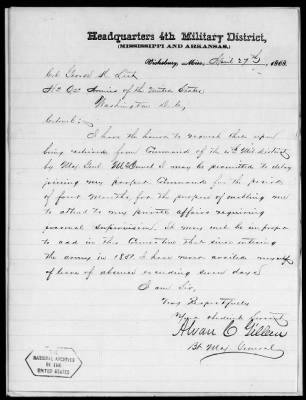 Headquarters 4th Military District,
(MISSISSIPPI AND ARKANSAS,)
Vicksburg, Miss., April 27th, 1868.
Col George K. Leet
Hd Qrs Armies of the United States
Washington D.C.
Colonel:
I have the honor to request that upon
being relieved from Command of the 4th Mil District
by Maj. Genl. McDowell I may be permitted to delay
joining my proper Command for the period
of four Months, for the purpose of enabling me
to attend to my private affairs requiring
personal supervision. It may not be improper
to add in this connection that since entering
the army in 1851 I have never availed myself
of leave of absence exceeding seven days.
I am Sir,
Very Respectfully
Your obedient servant
Alvan C Gillem
Bt Maj. General
NATIONAL ARCHIVES
OF THE
UNITED STATES